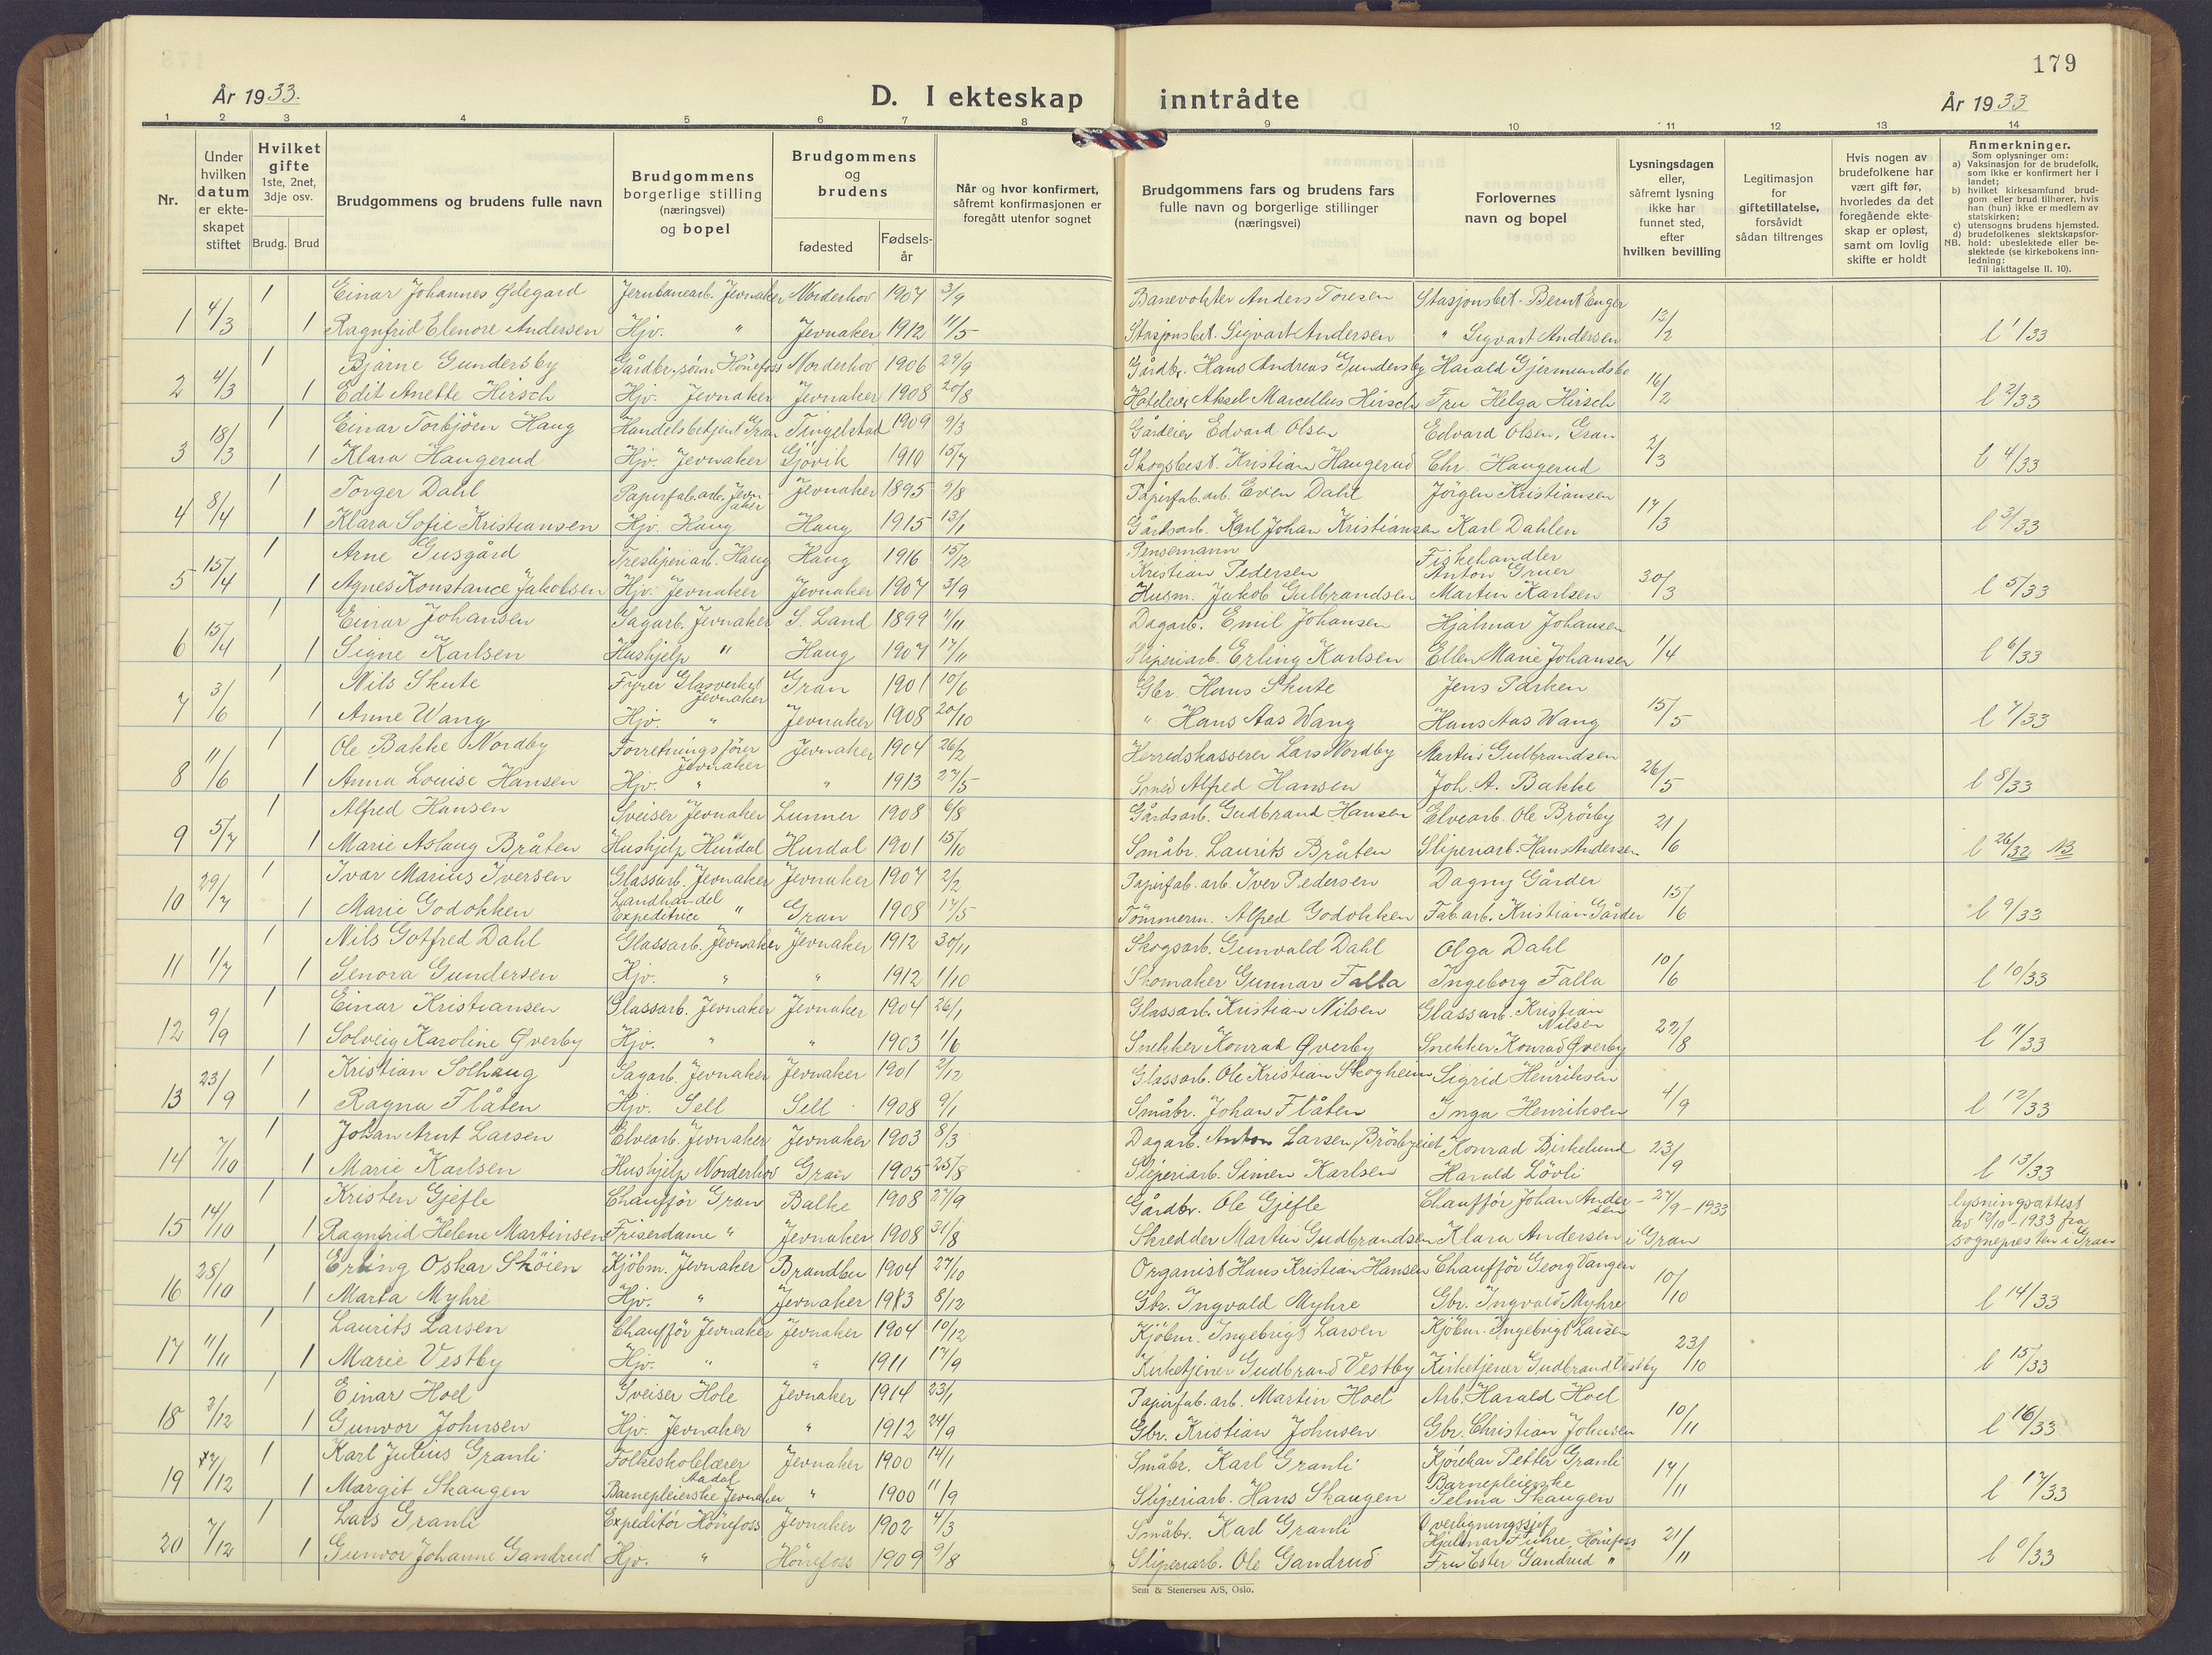 179
År 1933.
D. I ekteskap inntrådte
År 1933
1 2 3 4 5 6 7 8 9 10 11 12 13 14
Nr.
Under hvilken datum er ekteskapet stiftet
Hvilket gifte 1ste, 2net, 3dje osv.
Brudg. Brud
Brudgommens og brudens fulle navn
Brudgommens borgerlige stilling (næringsvei) og bopel
Brudgommens og brudens
fødested
Fødselsår
Når og hvor konfirmert, såfremt konfirmasjonen er foregått utenfor sognet
Brudgommens fars og brudens fars fulle navn og borgerlige stillinger (næringsvei)
Forlovernes navn og bopel
Lysningsdagen eller, såfremt lysning ikke har funnet sted, efter hvilken bevilling
Legitimasjon for giftetillatelse, forsåvidt sådan tiltrenges
Hvis nogen av brudefolkene har vært gift før, hvorledes da det foregående ekteskap er opløst, samt om lovlig skifte er holdt
Anmerkninger.
Som oplysninger om:
a) Vaksinasjon for de brudefolk, som ikke er konfirmert her i landet;
b) hvilket kirkesamfund brudgom eller brud tilhører, hvis han (hun) ikke er medlem av statskirken;
c) utensogns brudens hjemsted.
d) brudefolkenes slektskapsforhold: ubeslektede eller beslektede (se kirkebokens innledning:
NB. Til iakttagelse II. 10).
1 Einar Johannes Ødegard Jernbanearb. Jevnaker Norderhov 1907 3/9 Banevokter Anders Toresen Stasjonsbet. Bernt Enger
1 4/3 1 Ragnfrid Elenore Andersen Hjv. " Jevnaker 1912 11/5 Stasjonsbet. Sigvart Andersen " Sigvart Andersen 13/2 l 1/33
1 Bjarne Gundersby Gårdbr.sønn Hönefoss Norderhov 1906 29/9 Gårdbr. Hans Andreas Gundersby Harald Gjermundsbo
2 4/3 1 Edit Anette Hirsch Hjv. Jevnaker Jevnaker 1908 20/8 Hoteleier Aksel Marcellus Hirsch Fru Helga Hirsch 16/2 l 2/33
1 Einar Torbjöen Haug Handelsbetjent Gran Tingelstad 1909 9/3 Gårdeier Edvard Olsen Edvard Olsen, Gran
3 18/3 1 Klara Haugerud Hjv. Jevnaker Gjövik 1910 15/7 Skogsbest. Kristian Haugerud Chr. Haugerud 2/3 l 4/33
1 Torger Dahl Papirfab.arb. Jevnaker Jevnaker 1895 9/8 Papirfab.arb. Even Dahl Jörgen Kristiansen
4 8/4 1 Klara Sofie Kristiansen Hjv. Haug Haug 1915 13/1 Gårdsarb. Karl Johan Kristiansen Karl Dahlen 17/3 l 3/33
1 Arne Gusgård Tresliperiarb. Haug Haug 1916 15/12 Pensemann Kristian Pedersen Fiskehandler Anton Gruer
5 15/4 1 Agnes Konstance Jakobsen Hjv. Jevnaker Jevnaker 1907 3/9 Husm. Jakob Gulbrandsen Martin Karlsen 30/3 l 5/33
1 Einar Johansen Sagarb. Jevnaker S. Land 1899 11/11 Dagarb. Emil Johansen Hjalmar Johansen
6 15/4 1 Signe Karlsen Hushjelp " Haug 1907 17/11 Sliperiarb. Erling Karlsen Ellen Marie Johansen 1/4 l 6/33
1 Nils Skute Fyrer Glasverket Jevnaker Gran 1901 10/6 Gbr. Hans Skute Jens Parken
7 3/6 1 Anne Wang Hjv. " Jevnaker 1908 20/10 " Hans Aas Wang Hans Aas Wang 15/5 l 7/33
1 Ole Bakke Nordby Forretningsförer Jevnaker Jevnaker 1904 26/2 Herredskasserer Lars Nordby Martin Gulbrandsen
8 11/6 1 Anna Louise Hansen Hjv. " " 1913 27/5 Smed Alfred Hansen Joh. A. Bakke 26/5 l 8/33
1 Alfred Hansen Sveiser Jevnaker Lunner 1908 6/8 Gårdsarb. Gudbrand Hansen Elvearb. Ole Brörby
9 5/7 1 Marie Aslaug Bråten Hushjelp Hurdal Hurdal 1901 15/10 Småbr. Laurits Bråten Sliperiarb. Hans Andersen 21/6 l 26/32 NB
1 Ivar Marius Iversen Glassarb. Jevnaker Jevnaker 1907 2/2 Papirfab.arb. Iver Pedersen Dagny Gårder
10 29/7 1 Marie Godokken Landhandel Expeditrice " Gran 1908 17/5 Tömmerm. Alfred Godokken Fab.arb. Kristian Gårder 15/6 l 9/33
1 Nils Gotfred Dahl Glassarb. Jevnaker Jevnaker 1912 30/11 Skogsarb. Gunvald Dahl Olga Dahl
11 1/7 1 Senora Gundersen Hjv. " " 1912 1/10 Skomaker Gunnar Falla Ingeborg Falla 10/6 l 10/33
1 Einar Kristiansen Glassarb. Jevnaker Jevnaker 1904 26/1 Glassarb. Kristian Nilsen Glassarb. Kristian Nilsen
12 9/9 1 Solveig Karoline Øverby Hjv. " " 1903 1/6 Snekker Konrad Øverby Snekker Konrad Øverby 22/8 l 11/33
1 Kristian Solhaug Sagarb. Jevnaker Jevnaker 1901 2/12 Glassarb. Ole Kristian Skogheim Sigrid Henriksen
13 23/9 1 Ragna Flåten Hjv. Sell Sell 1908 9/1 Småbr. Johan Flåten Inga Henriksen 4/9 l 12/33
1 Johan Arnt Larsen Elvearb. Jevnaker Jevnaker 1903 8/3 Dagarb. Anton Larsen, Brörbyeiet Konrad Birkelund
14 7/10 1 Marie Karlsen Hushjelp Norderhov Gran 1905 25/8 Sliperiarb. Simen Karlsen Harald Lövli 23/9 l 13/33
1 Kristen Gjefle Chauffør Gran Balke 1908 27/9 Gårdbr. Ole Gjefle Chauffør Johan Andersen 27/9-1933 lysningsattest
15 14/10 1 Ragnfrid Helene Martinsen Friserdame " Jevnaker 1908 31/8 Skredder Martin Gudbrandsen Klara Andersen i Gran av 12/10-1933 fra sognepresten i Gran
1 Erling Oskar Sköien Kjöbm. Jevnaker Brandbu 1904 27/10 Organist Hans Kristian Hansen Chauffør Georg Vangen
16 28/10 1 Marta Myhre Hjv. " Jevnaker 1913 8/12 Gbr. Ingvald Myhre Gbr. Ingvald Myhre 10/10 l 14/33
1 Laurits Larsen Chauffør Jevnaker Jevnaker 1904 10/12 Kjöbm. Ingebrigt Larsen Kjöbm. Ingebrigt Larsen
17 11/11 1 Marie Vestby Hjv. " " 1911 17/9 Kirketjener Gudbrand Vestby Kirketjener Gudbrand Vestby 23/10 l 15/33
1 Einar Hoel Sveiser Hole Jevnaker 1914 23/1 Papirfab.arb. Martin Hoel Arb. Harald Hoel
18 2/12 1 Gunvor Johnsen Hjv. Jevnaker " 1912 24/9 Gbr. Kristian Johnsen Gbr. Christian Johnsen 10/11 l 16/33
1 Karl Julius Granli Folkeskolelærer Aadal Jevnaker 1900 14/1 Småbr. Karl Granli Kjörekar Petter Granli
19 7/12 1 Margit Skaugen Barnepleierske Jevnaker " 1900 11/9 Sliperiarb. Hans Skaugen Barnepleierske Selma Skaugen 14/11 l 17/33
1 Lars Granli Expeditör Hönefoss Jevnaker 1902 4/3 Småbr. Karl Granli Overligningssjef Hjalmar Fuhre, Hönefoss
20 7/12 1 Gunvor Johanne Gandrud Hjv. " Hönefoss 1909 9/8 Sliperiarb. Ole Gandrud Fru Ester Gandrud " 21/11 l 0/33
Sem & Stenersen A/S, Oslo.